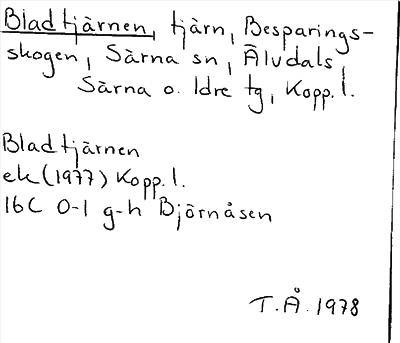 Bladtjärnen, tjärn, Besparings-
skogen, Särna sn, Älvdals,
Särna o. Idre tg, Kopp. l.
Bladtjärnen
ek (1977) Kopp. l.
16C 0-1 g-h Björnåsen
T.Å. 1978